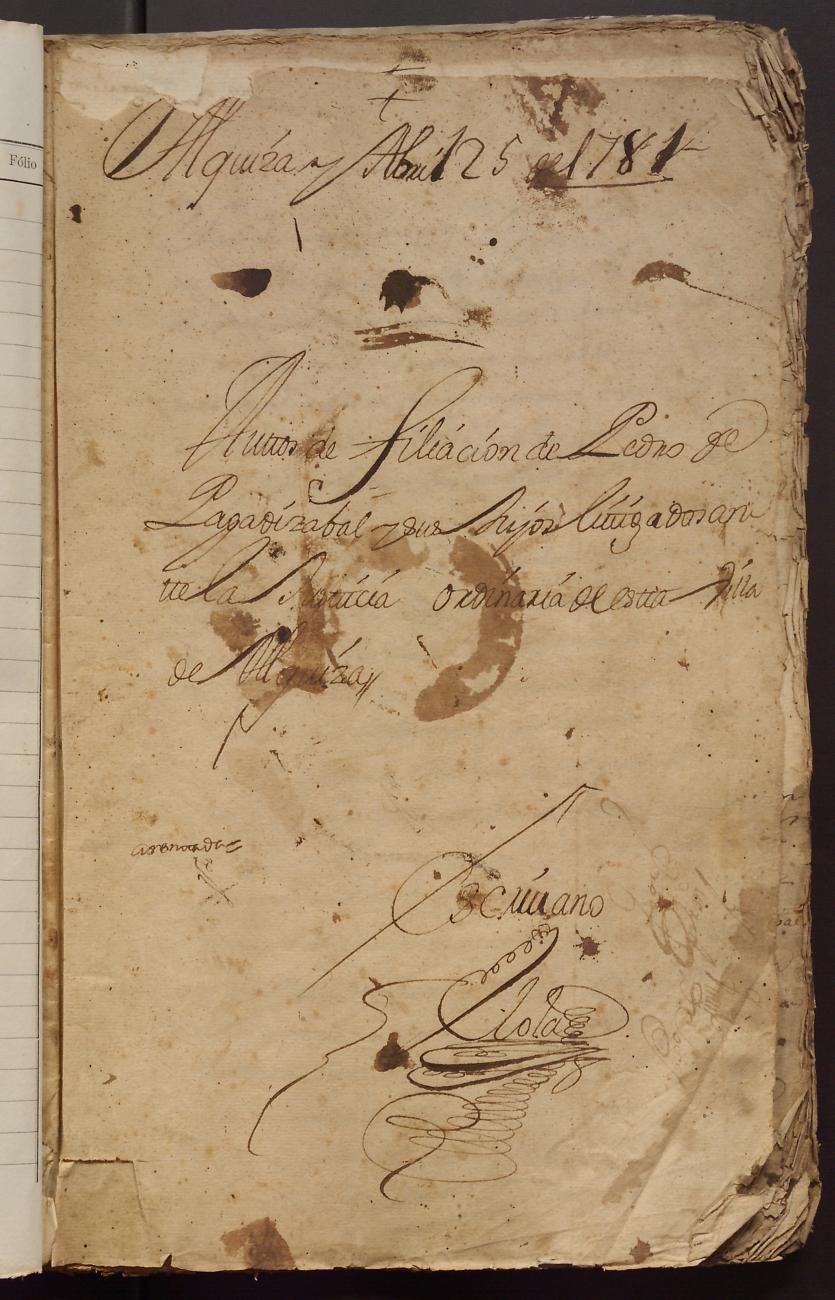 Fólio
+
Alquiza y Abril 25 de 1781
Auttos de filiación de Pedro de
Pagadizabal y sus hijos littigados an
tte la Justicia ordinaria de estta Villa
de Alquiza
Escrivano
Elola